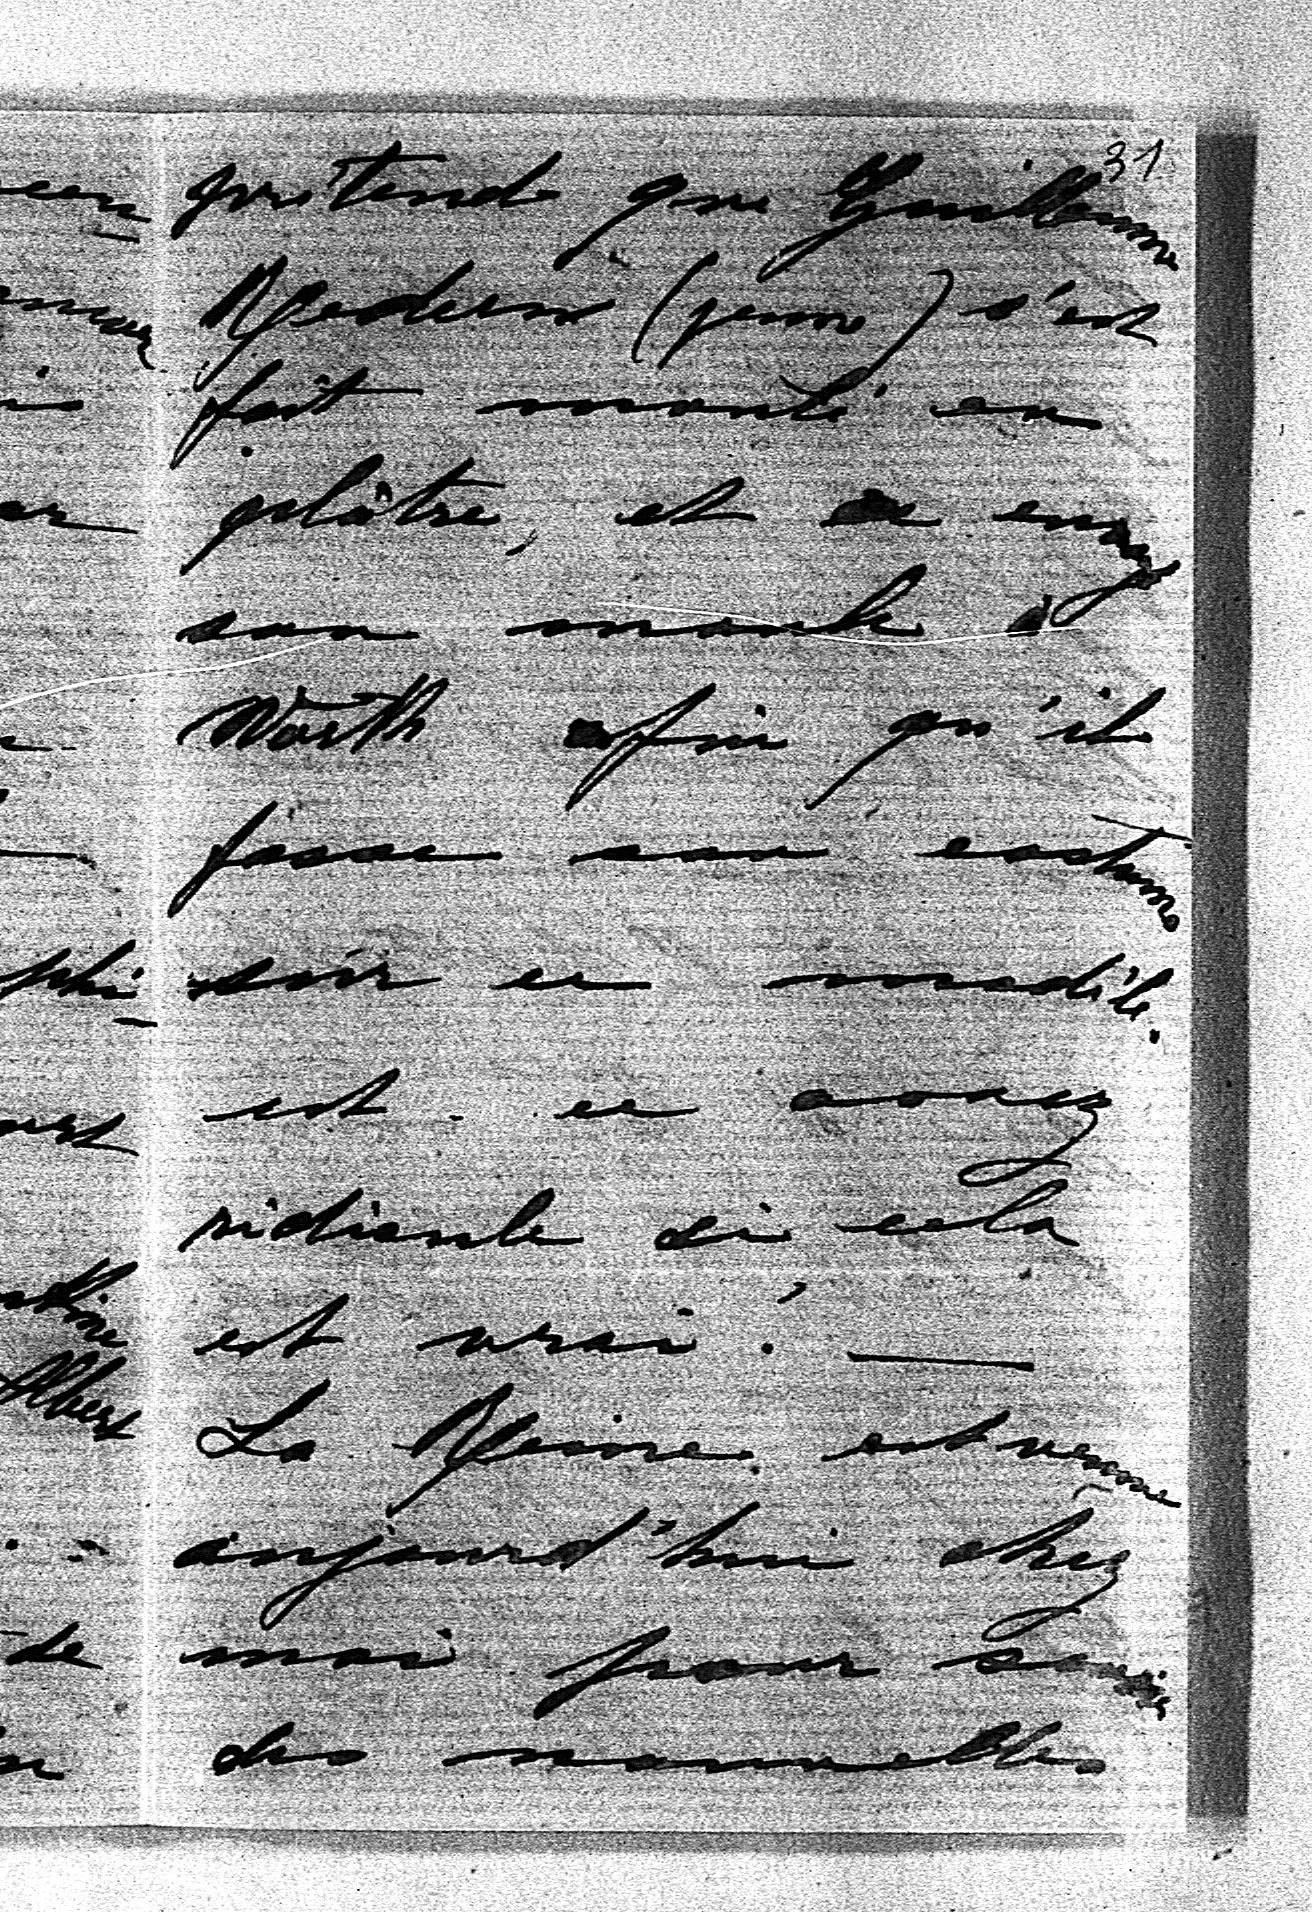 31
prétend que Guillaume
Redern (jeune) s'est
fait moulé en
plâtre, et a envoyé
son moule à
Worth afin qu'il
fasse son costume
sur ce modèle.
est-ce assez
ridicule si cela
est vrai! —
La Reine est venue
aujourd'hui chez
moi pour savoir
des nouvelles